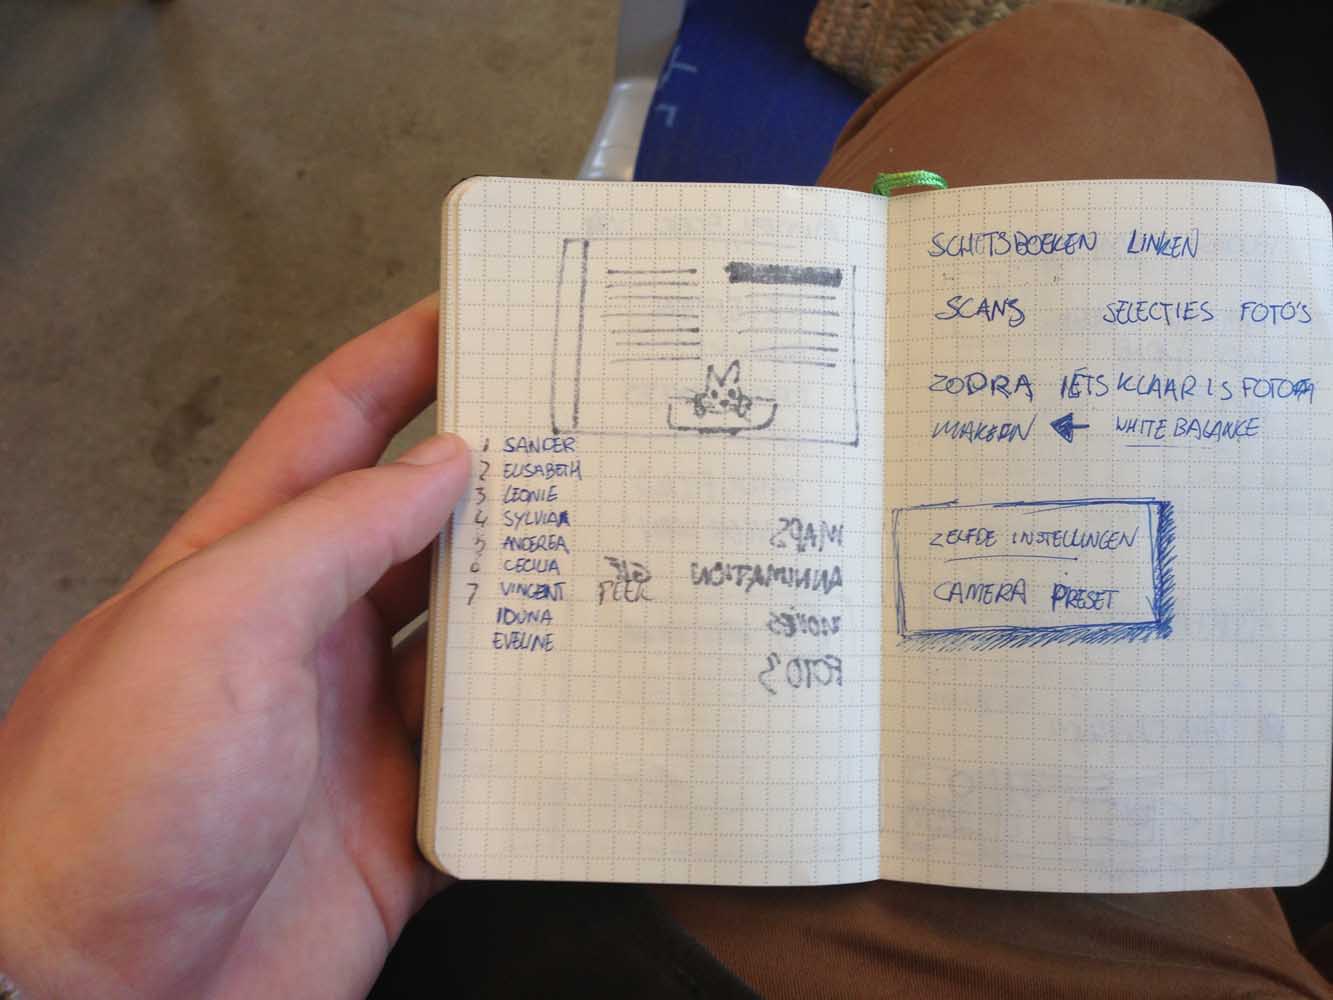 1 SANDER
2 ELISABETH
3 LEONIE
4 SYLVIA
5 ANDEREA
6 CECILIA
7 VINCENT PEER
IDUNA
EVELINE
MAPS
ANNIMATION
MOVIES
FOTO'S
SCHETSBOEKEN LINKEN
SCANS SELECTIES FOTO'S
ZODRA IETS KLAAR IS FOTO
MAKEN WHITE BALANCE
ZELFDE INSTELLINGEN
CAMERA PRESET